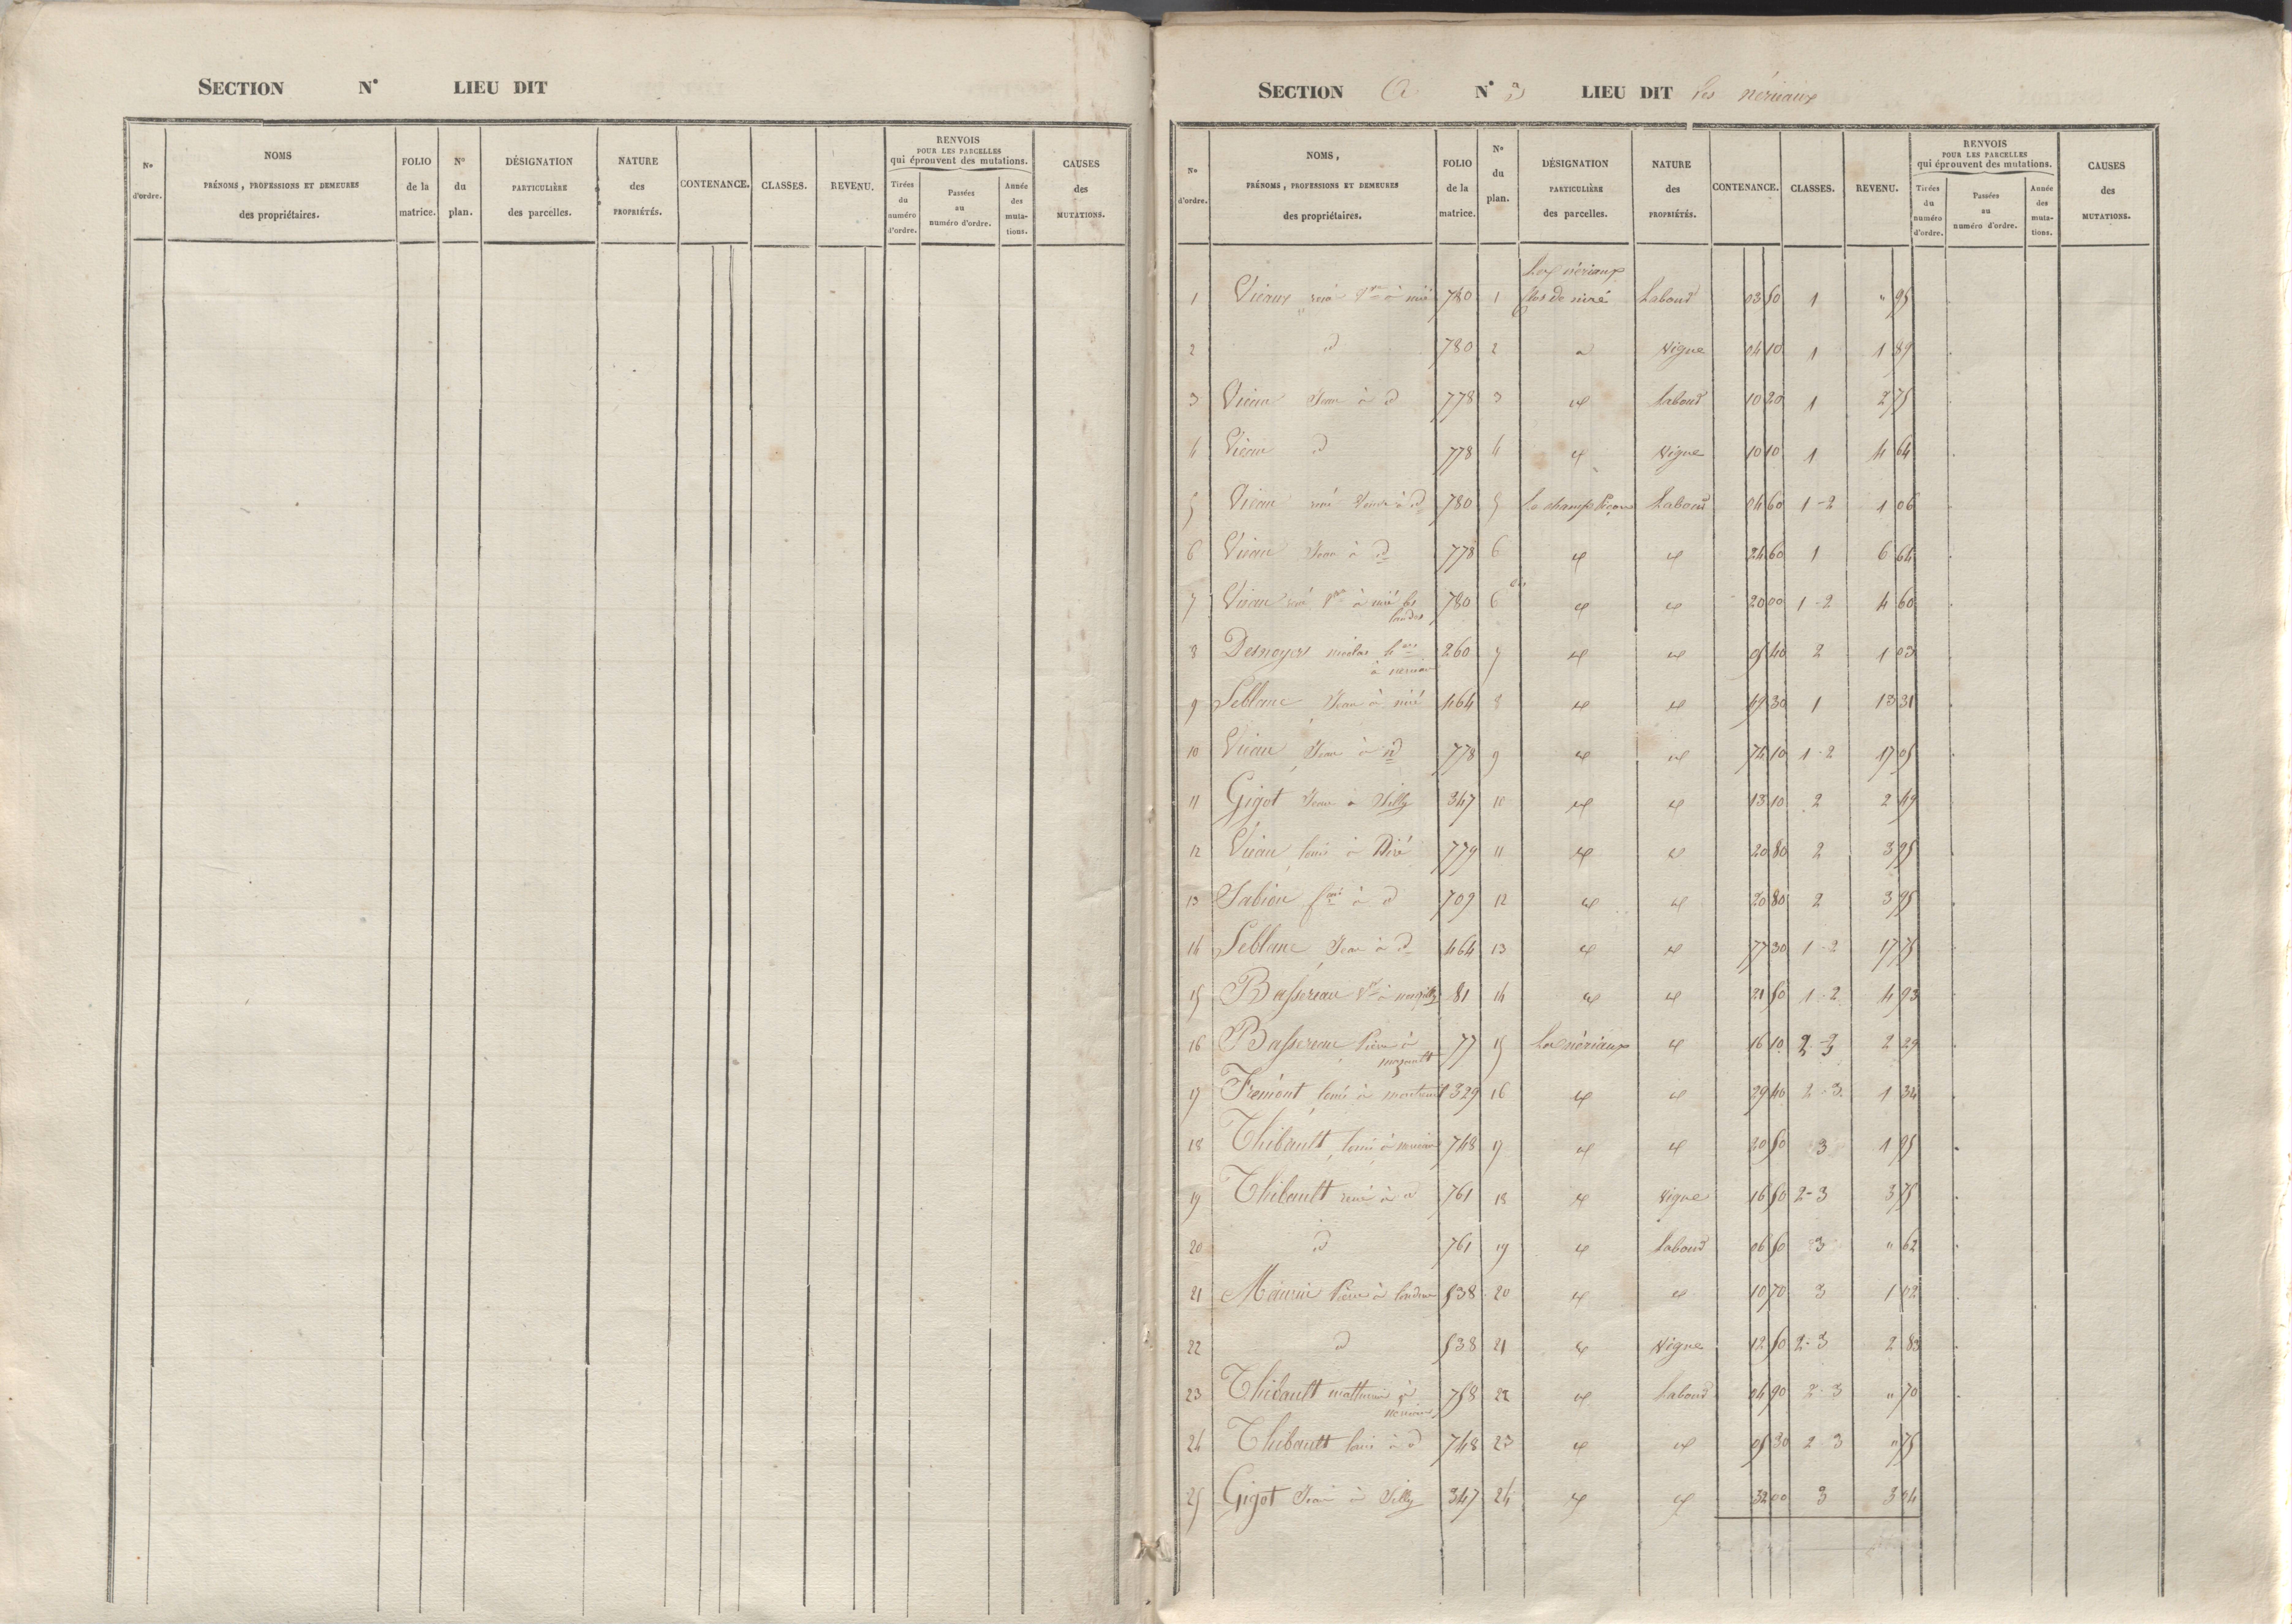 SECTION N° LIEU DIT
N° d'ordre.
NOMS
PRÉNOMS, PROFESSIONS ET DEMEURES
des propriétaires.
FOLIO de la matrice.
N° du plan.
DÉSIGNATION PARTICULIÈRE des parcelles.
NATURE des PROPRIÉTÉS.
CONTENANCE.
CLASSES.
REVENU.
RENVOIS
POUR LES PARCELLES
qui éprouvent des mutations.
Tirées du numéro d'ordre.
Passées au numéro d'ordre.
Année des mutations.
CAUSES des MUTATIONS.
SECTION A N° LIEU DIT Les nériaux
N° d'ordre.
NOMS,
PRÉNOMS, PROFESSIONS ET DEMEURES
des propriétaires.
FOLIO de la matrice.
N° du plan.
DÉSIGNATION PARTICULIÈRE des parcelles.
NATURE des PROPRIÉTÉS.
CONTENANCE.
CLASSES.
REVENU.
RENVOIS
POUR LES PARCELLES
qui éprouvent des mutations.
Tirées du numéro d'ordre.
Passées au numéro d'ordre.
Année des mutations.
CAUSES des MUTATIONS.
Les nériaux
1 780 1 Labour 03 50 1 " 95
2 id 780 2 Vigne 04 10 1 1 89
3 Viau Jean à id 778 3 id Labour 10 20 1 2 75
4 Viau id 778 4 id Vigne 10 10 1 4 64
5 Viau rené à id 780 5 Labour 04 60 1-2 1 06
6 Viau Jean à id 778 6 id id 24 60 1 6 64
7 Viau rené 780 6 bis id id 20 00 1-2 4 60
8 Desnoyers nicolas 260 7 id id 05 40 2 1 03
9 Leblanc Jean à 464 8 id id 49 30 1 13 31
10 Viau Jean à id 778 9 id id 74 10 1-2 17 05
11 Gigot Jean à Silly 347 10 id id 13 10 2 2 49
12 Viau louis à 779 11 id id 20 80 2 3 95
13 Sabiou à id 709 12 id id 20 80 2 3 95
14 Leblanc Jean à id 464 13 id id 77 30 1-2 17 75
15 Bassereau 81 14 id id 21 50 1-2 4 93
16 Bassereau Pierre à 77 15 Les nériaux id 16 10 2-3 2 29
17 Frémont louis à 329 16 id id 29 40 2-3 1 34
18 Thibault louis à 748 17 id id 20 50 3 1 95
19 Thibault rené à id 761 18 id Vigne 16 50 2-3 3 75
20 id 761 19 id Labour 06 50 3 " 62
21 Pierre à loudun 538 20 id id 10 70 3 1 02
22 id 538 21 id Vigne 12 50 2-3 2 83
23 Thibault mathurin à 758 22 id Labour 04 90 2-3 " 70
24 Thibault louis à id 748 23 id id 05 30 2 3 " 75
25 Gigot Jean à Silly 347 24 id id 32 00 3 3 04